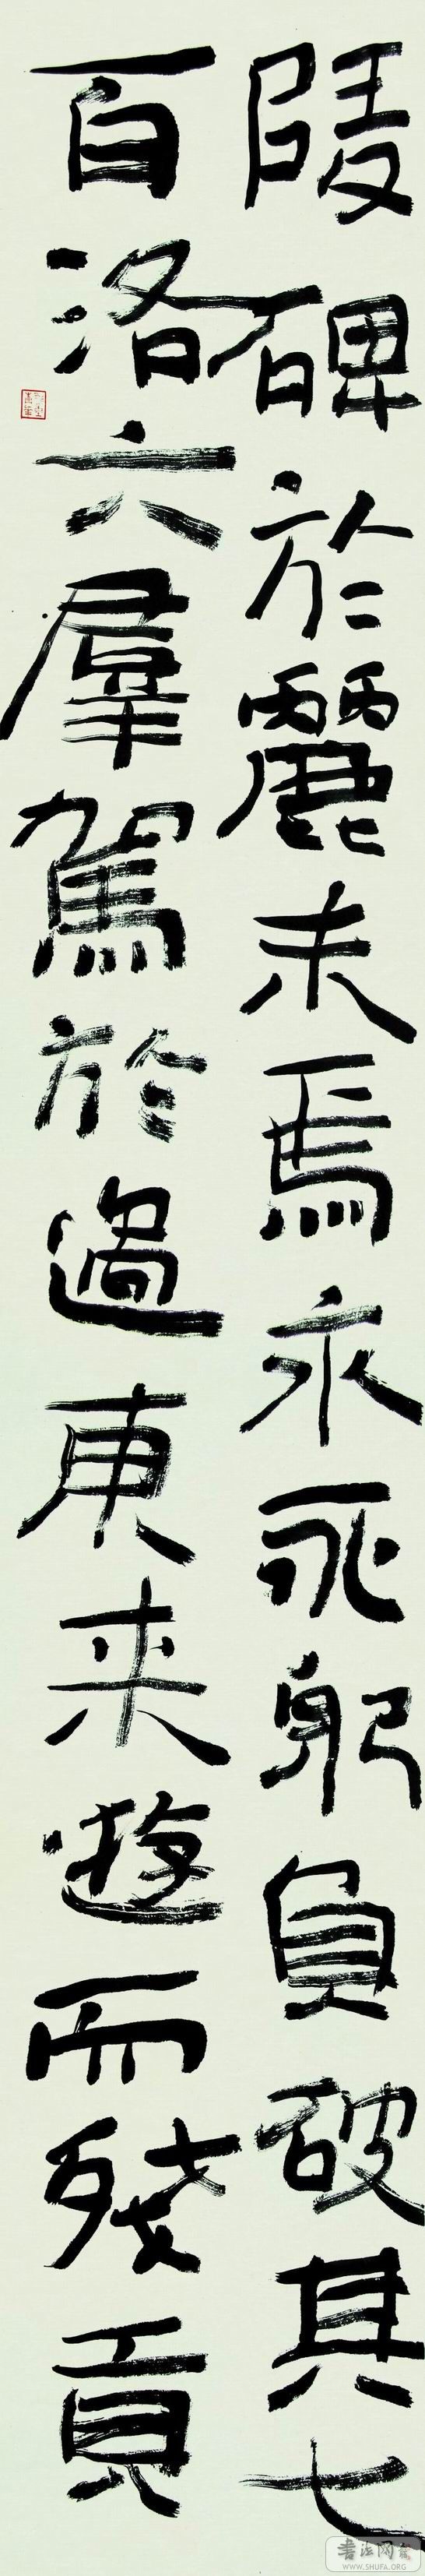 陵碑於麗未焉永躬負破其七
百洛六羣駕於過東来遊而殘貢
書法网
WWW.SHUFA.ORG